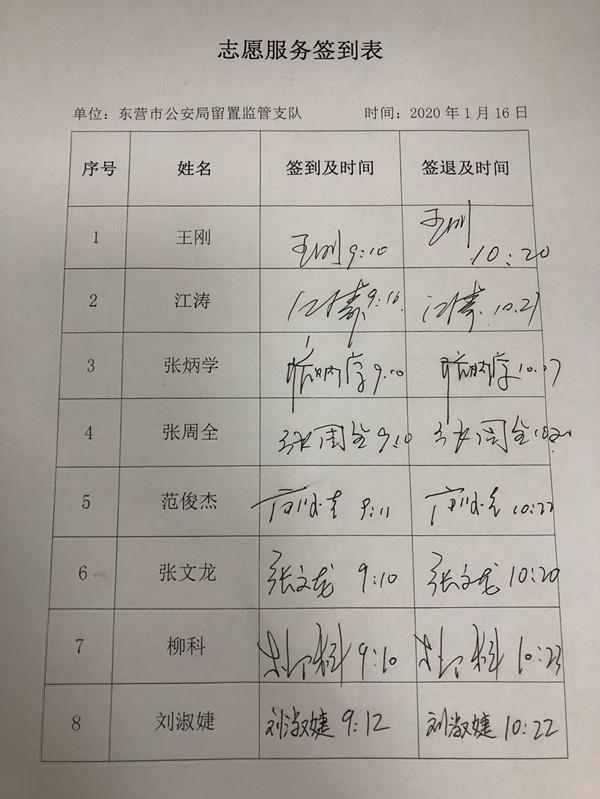 志愿服务签到表
单位：东营市公安局留置监管支队 时间：2020 年 1 月 16 日
序号 姓名 签到及时间 签退及时间
1 王刚 王刚 9:10 王刚 10:20
2 江涛 江涛 9:16 江涛 10.27
3 张炳学 张炳学 9:10 张炳学
4 张周全 张周全 9:10 张周全
5 范俊杰 范俊杰 9:11 范俊杰 10:22
6 张文龙 张文龙 9:10 张文龙 10:20
7 柳科 柳科 9:10 柳科 10:23
8 刘淑婕 刘淑婕 9:12 刘淑婕 10:22